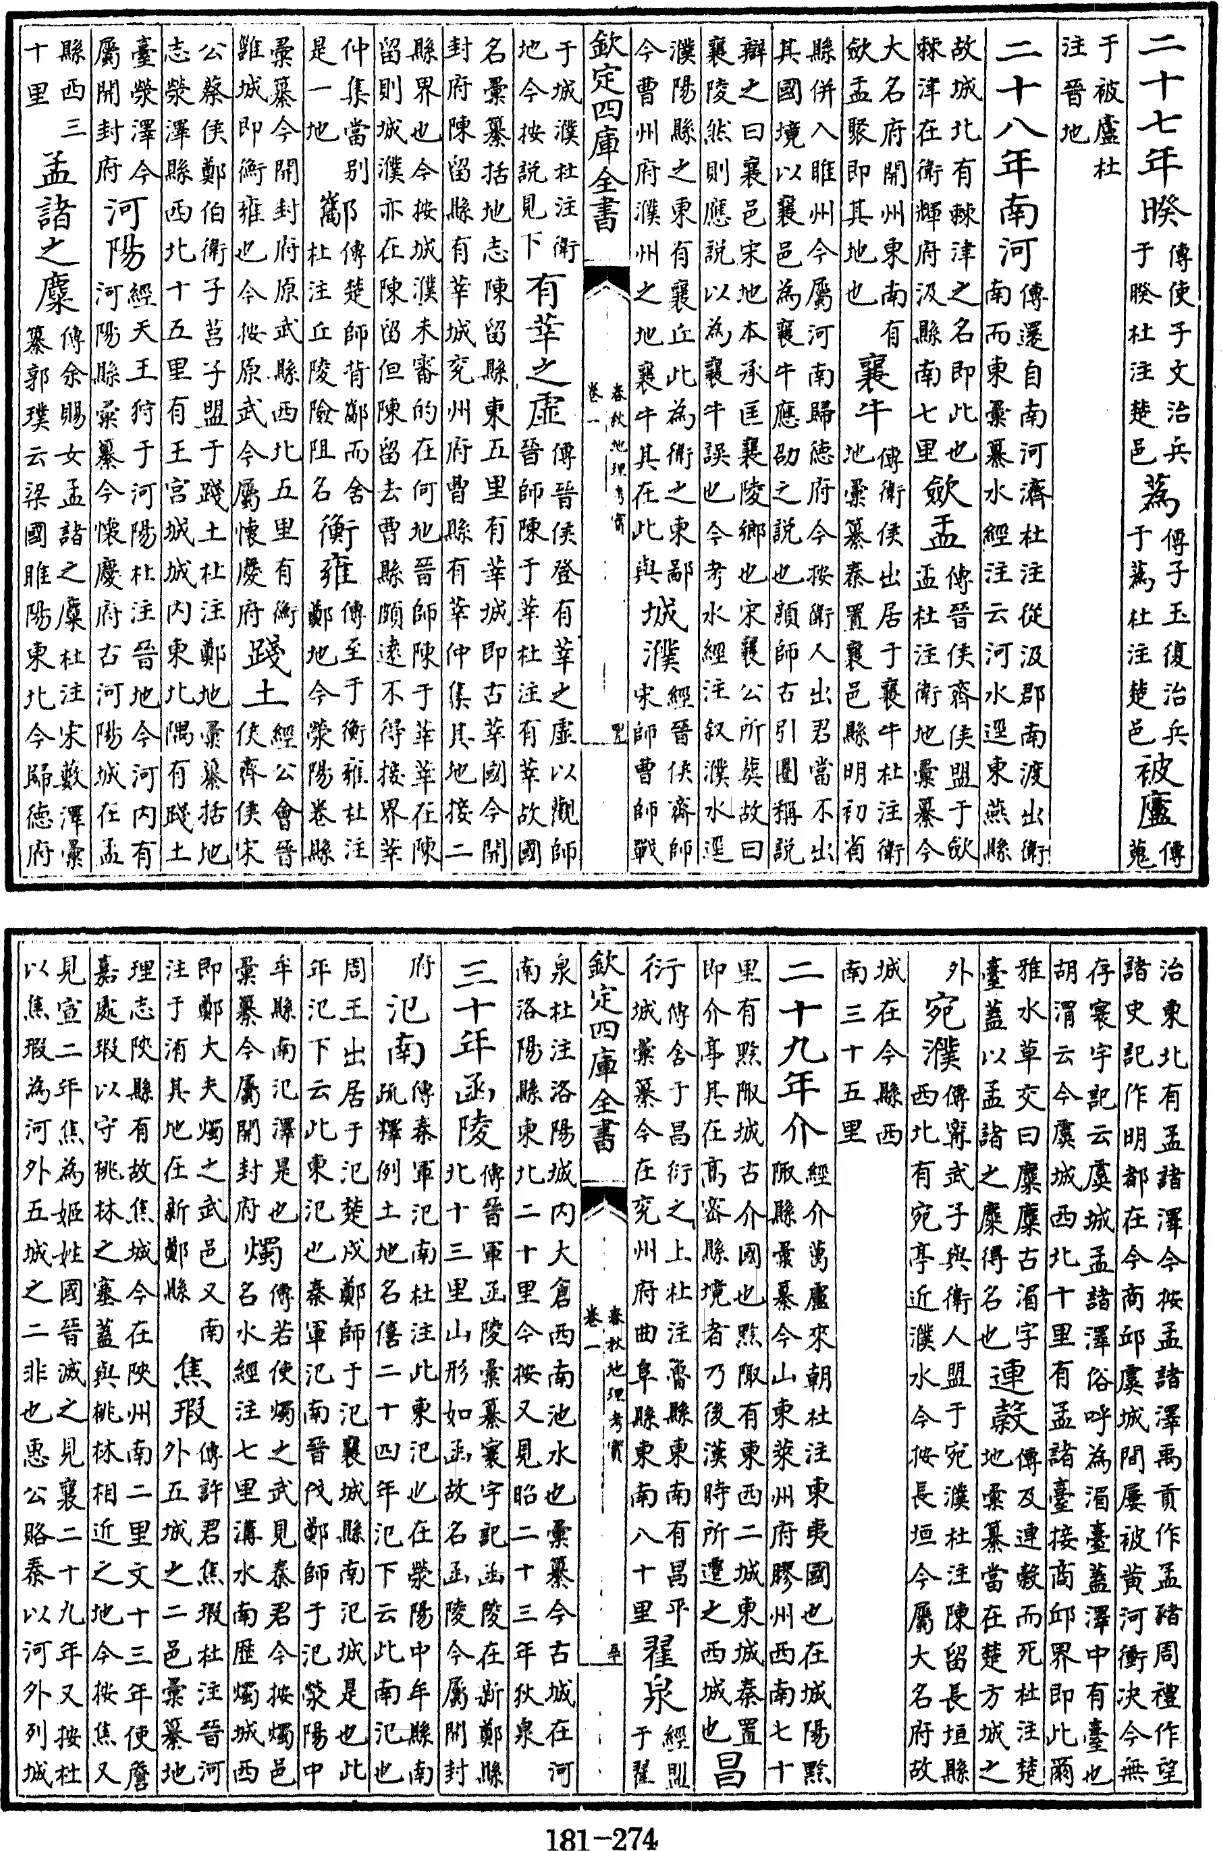 二十七年睽傳使子文治兵于睽杜注楚邑蒍傳子玉復治兵于蒍杜注楚邑被廬傳蒐
于被廬杜注晉地
二十八年南河傳還自南河濟杜注從汲郡南渡出衛南而東彙纂水經注云河水逕東燕縣
故城北有棘津之名即此也棘津在衛輝府汲縣南七里斂盂傳晉侯齊侯盟于斂盂杜注衛地彙纂今
大名府開州東南有斂盂聚即其地也襄牛傳衛侯出居于襄牛杜注衛地彙纂秦置襄邑縣明初省
縣併入睢州今屬河南歸德府今按衛人出君當不出其國境以襄邑為襄牛應劭之說也顔師古引圈稱說
辯之曰襄邑宋地本承匡襄陵鄉也宋襄公所葬故曰襄陵然則應說以為襄牛誤也今考水經注叙濮水逕
濮陽縣之東有襄丘此為衛之東鄙今曹州府濮州之地襄牛其在此與城濮經晉侯齊師宋師曹師戰
欽定四庫全書
春秋地理考實
卷一
于城濮杜注衛地今按說見下有莘之虛傳晉侯登有莘之虛以觀師晉師陳于莘杜注有莘故國
名彙纂括地志陳留縣東五里有莘城即古莘國今開封府陳留縣有莘城兖州府曹縣有莘仲集其地接二
縣界也今按城濮未審的在何地晉師陳于莘莘在陳留則城濮亦在陳留但陳留去曹縣頗遠不得接界莘
仲集當别是一地酅傳楚師背酅而舍杜注丘陵險阻名衡雍傳至于衡雍杜注鄭地今滎陽卷縣
彙纂今開封府原武縣西北五里有衡雍城即衡雍也今按原武今屬懷慶府踐土經公會晉侯齊侯宋
公蔡侯鄭伯衛子莒子盟于踐土杜注鄭地彙纂括地志滎澤縣西北十五里有王宮城城內東北隅有踐土
臺滎澤今屬開封府河陽經天王狩于河陽杜注晉地今河內有河陽縣彙纂今懷慶府古河陽城在孟
縣西三十里孟諸之麋傳余賜女孟諸之麋杜注宋藪澤彙纂郭璞云梁國睢陽東北今歸德府
治東北有孟諸澤今按孟諸澤禹貢作孟豬周禮作望諸史記作明都在今商邱虞城間屢被黄河衝決今無
存寰宇記云虞城孟諸澤俗呼為湄臺蓋澤中有臺也胡渭云今虞城西北十里有孟諸臺接商邱界即此爾
雅水草交曰麋麋古湄字臺蓋以孟諸之麋得名也連穀傳及連穀而死杜注楚地彙纂當在楚方城之
外宛濮傳甯武子與衛人盟于宛濮杜注陳留長垣縣西北有宛亭近濮水今按長垣今屬大名府故
城在今縣西南三十五里
二十九年介經介葛盧來朝杜注東夷國也在城陽黔陬縣彙纂今山東萊州府膠州西南七十
里有黔陬城古介國也黔陬有東西二城東城秦置即介亭其在高密縣境者乃後漢時所遷之西城也昌
衍傳舍于昌衍之上杜注魯縣東南有昌平城彙纂今在兖州府曲阜縣東南八十里翟泉經盟于翟
欽定四庫全書
春秋地理考實
卷一
泉杜注洛陽城内大倉西南池水也彙纂今古城在河南洛陽縣東北二十里今按又見昭二十三年狄泉
三十年函陵傳晉軍函陵彙纂寰宇記函陵在新鄭縣北十三里山形如函故名函陵今屬開封
府氾南傳秦軍氾南杜注此東氾也在滎陽中牟縣南疏釋例土地名僖二十四年氾下云此南氾也
周王出居于氾楚戍鄭師于氾襄城縣南氾城是也此年氾下云此東氾也秦軍氾南晉伐鄭師于氾滎陽中
牟縣南氾澤是也彙纂今屬開封府燭傳若使燭之武見秦君今按燭邑名水經注七里溝水南歷燭城西
即鄭大夫燭之武邑又南注于洧其地在新鄭縣焦瑕傳許君焦瑕杜注晉河外五城之二邑彙纂地
理志陝縣有故焦城今在陝州南二里文十三年使詹嘉處瑕以守桃林之塞蓋與桃林相近之地今按焦又
見宣二年焦為姬姓國晉滅之見襄二十九年又按杜以焦瑕為河外五城之二非也惠公賂秦以河外列城
181-274